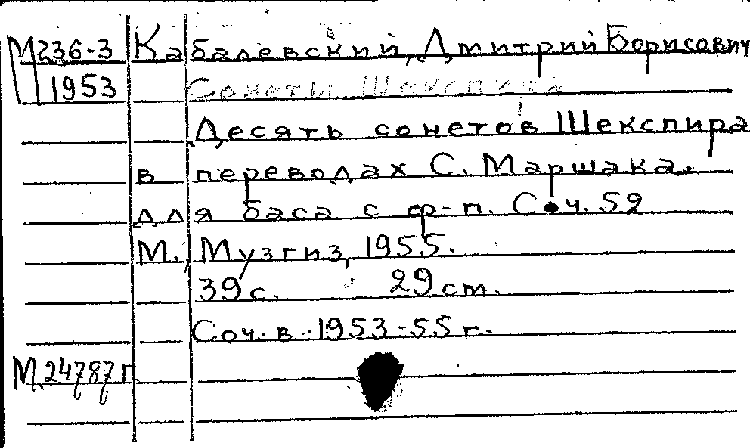 М236-3 Кабалевский, Дмитрий Борисович
1953 Сонеты Шекспира
Десять сонетов Шекспира
в переводах С. Маршака.
для баса с ф-п. Соч. 52
М., Музгиз, 1955.
39 с. 29 cm.
Соч. в 1953-55 г.
М 24787 г